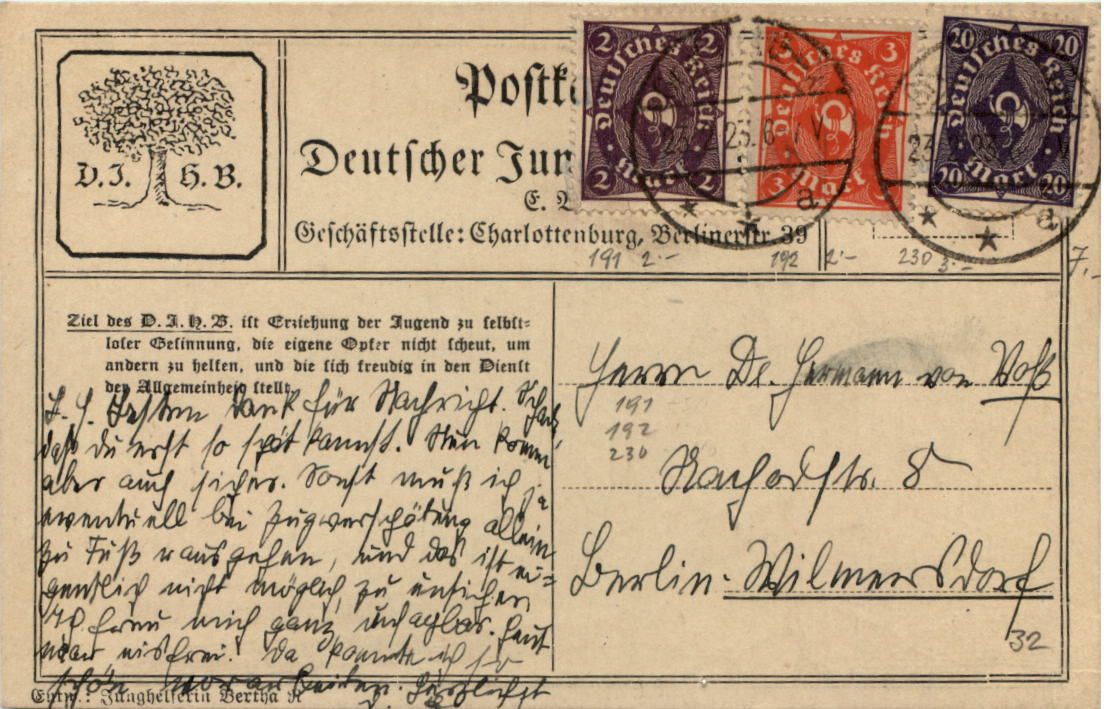 D.J. H.B.
Postk
Deutscher Jun
E.
Geschäftsstelle: Charlottenburg, Berlinerstr. 39
2 Deutsches Reich 2
2 Mark 2
3 Deutsches Reich
3 Mark
20 Deutsches Reich 20
20 Mark 20
a
a
191 2.-
192 2.-
230 3.-
7.-
Ziel des D. J. H. B. ist Erziehung der Jugend zu selbst-
loser Gesinnung, die eigene Opfer nicht scheut, um
andern zu helfen, und die sich freudig in den Dienst
der Allgemeinheit stellt.
L. H. Besten Dank für Nachricht. Schade,
daß du erst so spät kannst. Nun komm
aber auch sicher. Sonst muß ich ja
eventuell bei Zugverspätung allein
zu Fuß rausgehen, und das ist ei-
gentlich nicht möglich, zu unsicher.
Ich freu mich ganz unsagbar. Heut
war eisfrei. Da konnte ich so
schön vorarbeiten. Herzlichst
Entw.: Junghelferin Bertha K
Herrn Dr. Hermann von Voß
191
192
230
Nachodstr. 8
Berlin-Wilmersdorf
32